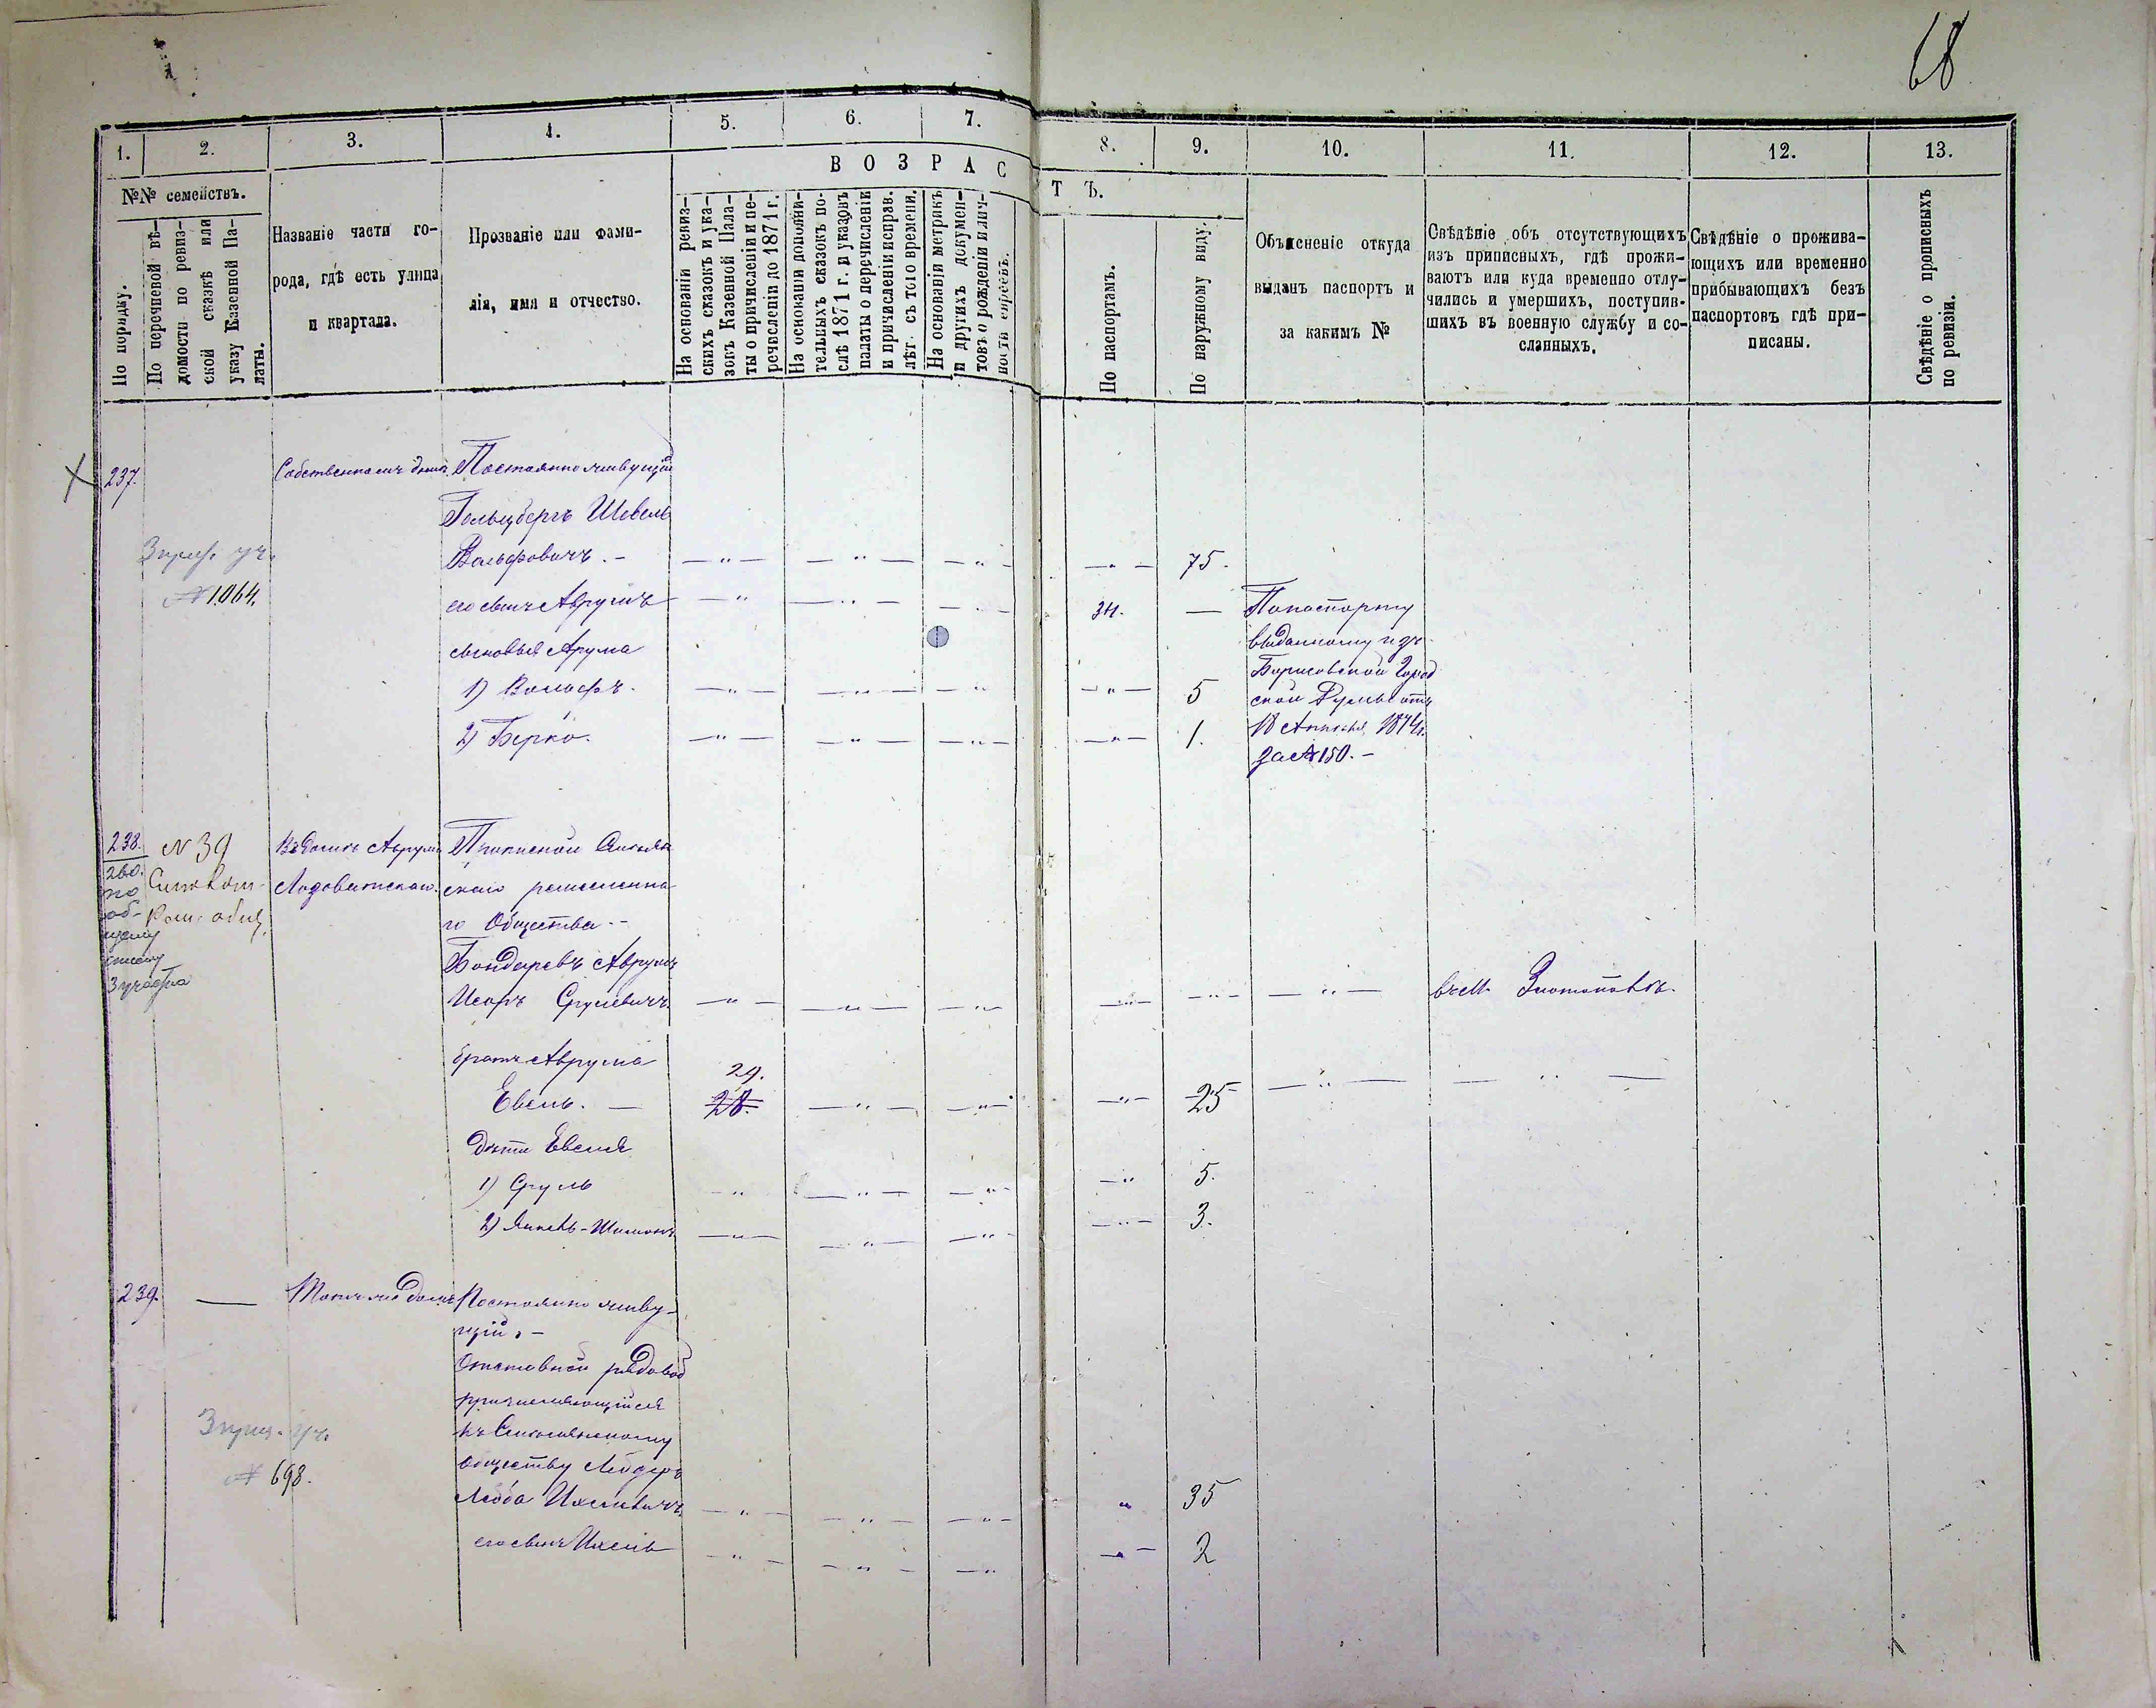 68
1.
2.
3.
4.
5.
6.
7.
8.
9.
10.
11.
12.
13.
№№ семействъ.
ВОЗРАС
ТЪ.
По порядку.
По перечневой вѣ-
домости по ревиз-
ской сказкѣ или
указу Казенной Па-
латы.
Названіе части го-
рода, гдѣ есть улица
и квартала.
Прозваніе или фами-
лія, имя и отчество.
На основаніи ревиз-
скихъ сказокъ и ука-
зовъ Казенной Пала-
ты о причисленіи и пе-
речисленіи до 1871 г.
На основаніи дополни-
тельныхъ сказокъ по-
слѣ 1871 г. и указовъ
палаты о перечисленіи
и причисленіи исправ.
лѣт. съ того времени.
На основаніи метрикъ
и другихъ докумен-
товъ о рожденіи и лич-
ности евреевъ.
По паспортамъ.
По наружному виду.
Объясненіе откуда
выданъ паспортъ и
за какимъ №
Свѣдѣніе объ отсутствующихъ
изъ приписныхъ, гдѣ прожи-
ваютъ или куда временно отлу-
чились и умершихъ, поступив-
шихъ въ военную службу и со-
сланныхъ.
Свѣдѣніе о прожива-
ющихъ или временно
прибывающихъ безъ
паспортовъ гдѣ при-
писаны.
Свѣдѣніе о прописныхъ
по ревизіи.
237.
Собственномъ домѣ
Постоянно живущій
Гольцбергъ Шевель
Вольфовичъ. -
75.
№ 1064.
его сынъ Аврумъ
34.
Попаспорту
выданному изъ
Борисовской Город
ской Думы отъ
18 Апрѣля 1874 г.
за № 150. -
сыновья Арума
1) Вольфъ.
5
2) Берко.
1.
238.
260.
по
об-
щему
списку
3 участка
№ 39
общ.
Въ домѣ Аврума
Прописной
го Общества. -
Бондаревъ Аврумъ
Исоръ Срулевичъ
въ м.
братъ Аврума
29.
Евель. -
28.
25
дѣти Евеля
1) Сруль
5.
2)
3.
239.
Томъ же домѣ
Постоянно живу-
щій. -
Отставной рядовой
причисляющійся
обществу
№ 698.
Лейба
35
его сынъ
2